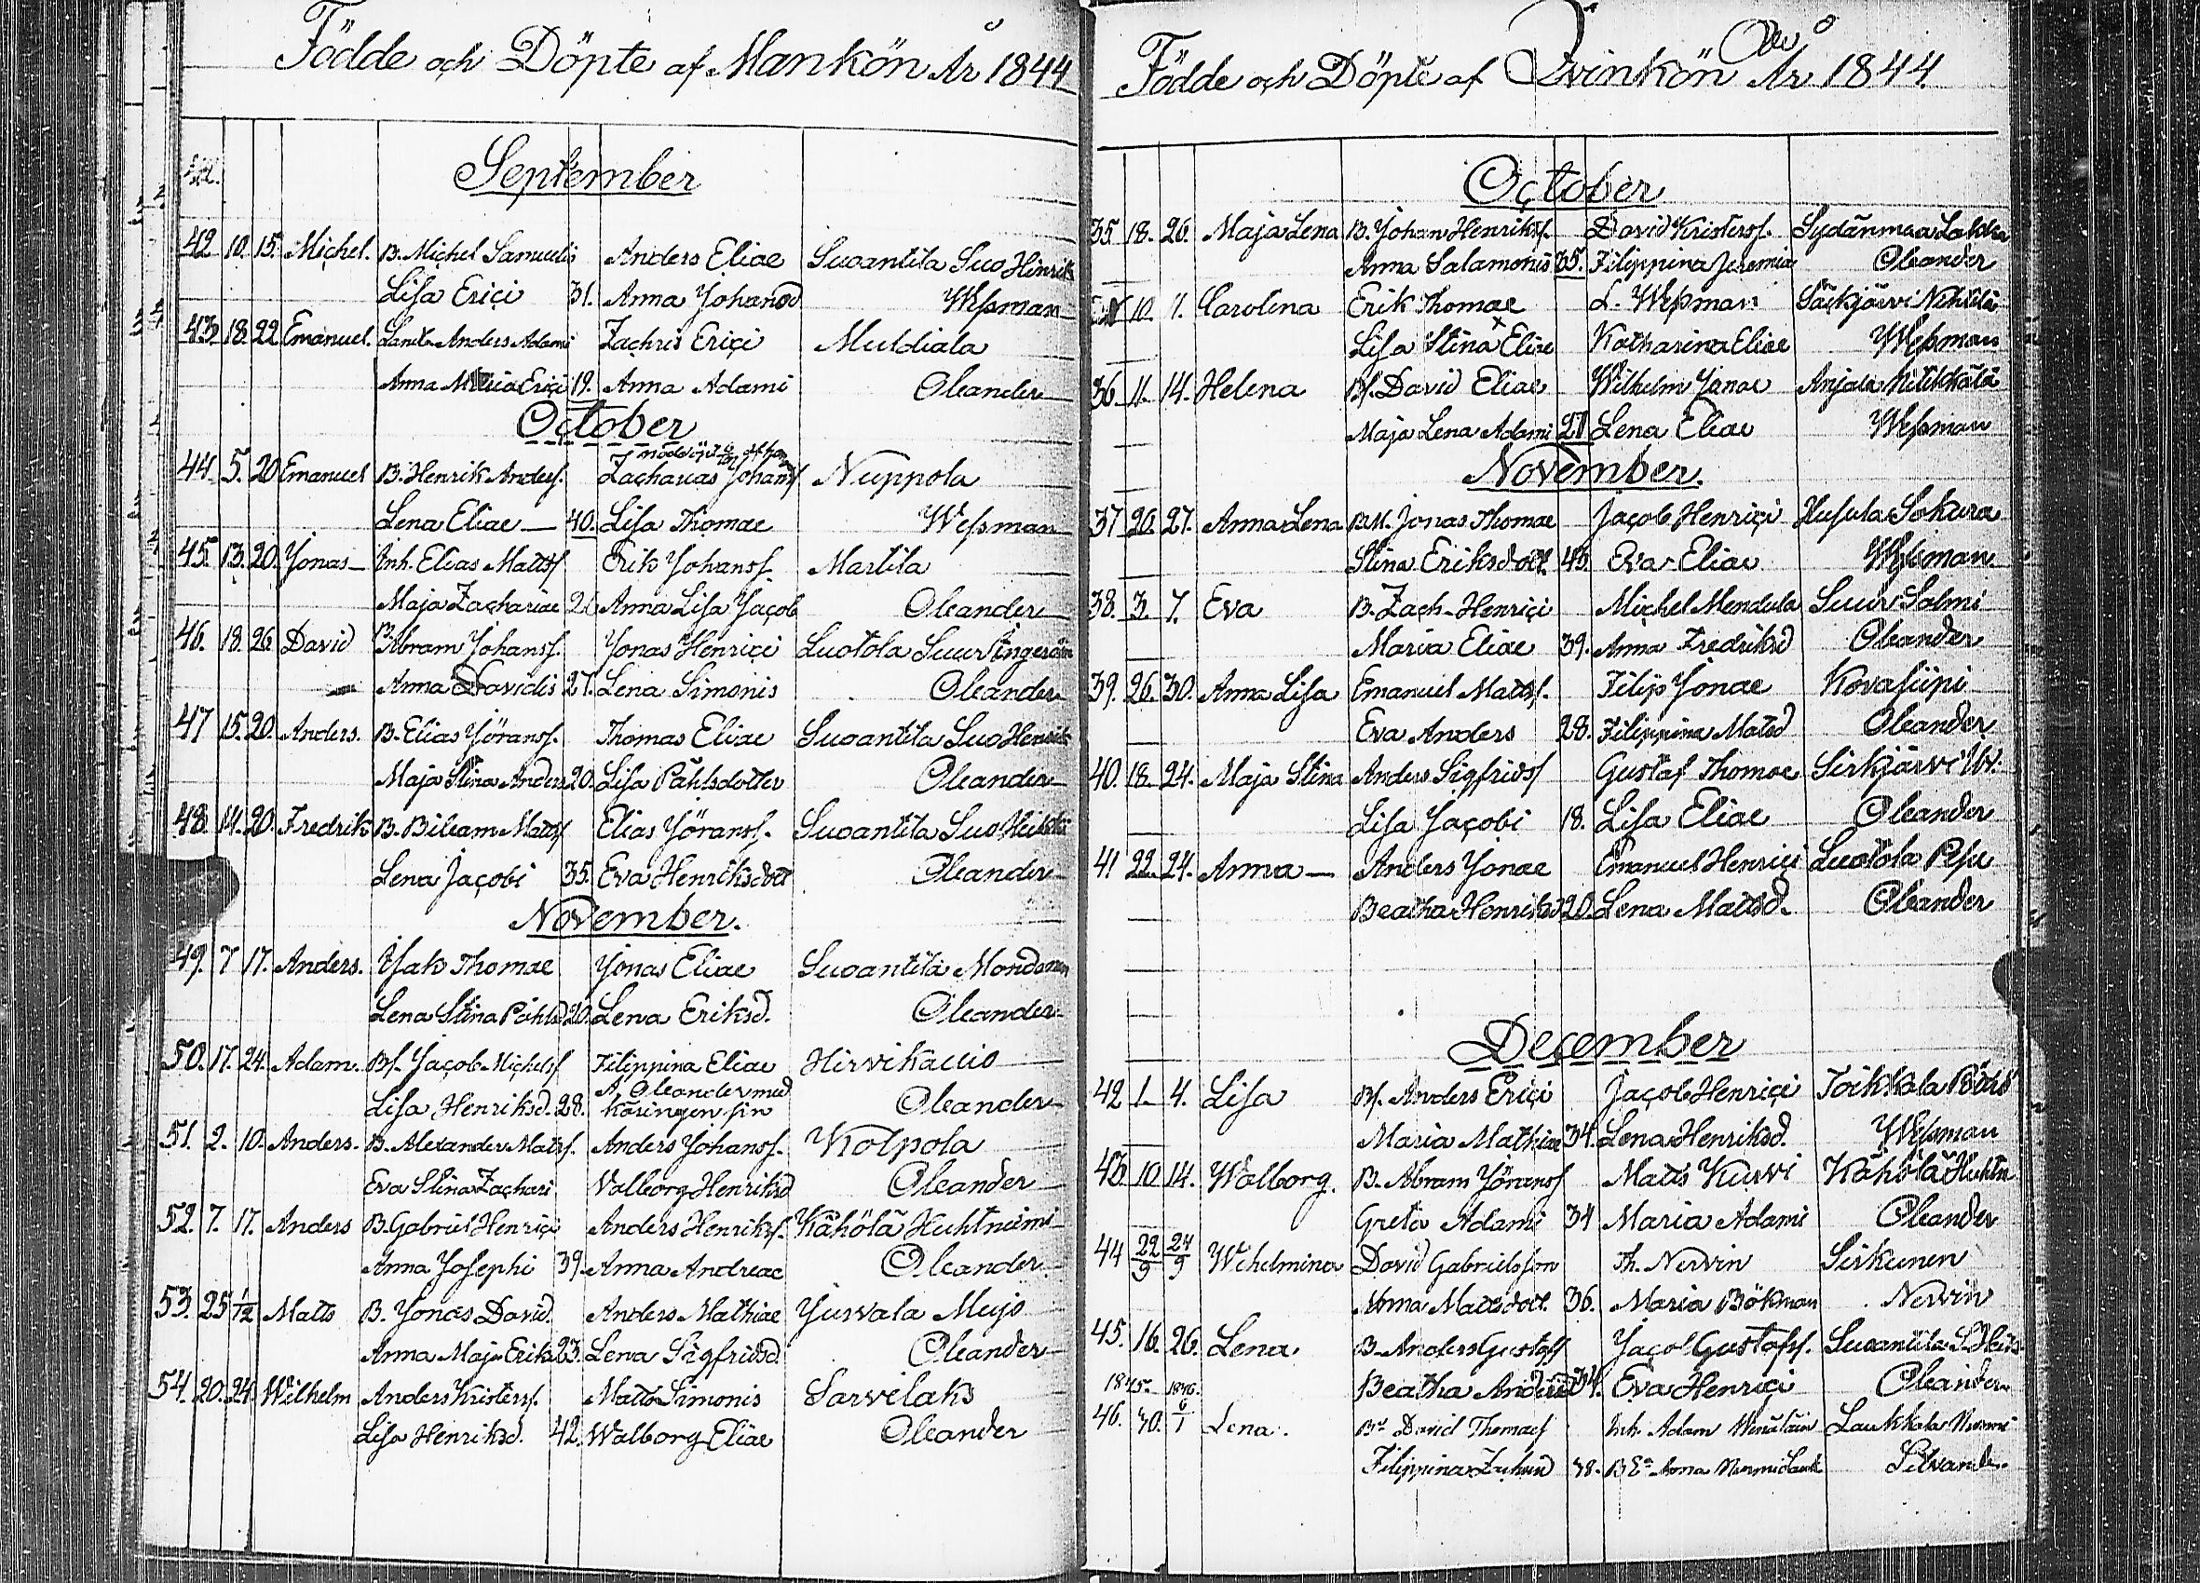 Födde och Döpte af Mankön År 1844
September
42 10. 15. Michel. B. Michel Samuelis Anders Eliae Suoantila Suo Hinrik
Lisa Erici 31. Anna Johansd Wessman
43 18. 22 Emanuel. Anders Adami Zachris Erici Muldiala
Anna Erici 19. Anna Adami Oleander
October
44. 5. 20 Emanuel B. Henrik Andersf. Zacharias Johansf Nuppola
Lena Eliae 40. Lisa Thomae Wessman
45. 13. 20. Jonas Inh. Elias Mattsf Erik Johansf. Martila
Maja Zachariae Anna Lisa Jacob Oleander
46. 18. 26 David B. Abram Johansf. Jonas Henrici Luotola Suur
Anna Davidis 27. Lena Simonis Oleander
47 15. 20. Anders. B. Elias Jöransf. Thomas Eliae Suoantila Suo Henrik
Maja Stina Anders 20. Lisa Påhlsdotter Oleander
48. 14. 20. Fredrik B. Bileam Mattsf Elias Jöransf. Suoantila Suo
Lena Jacobi 35. Eva Henriksdott Oleander
November.
49. 7 17. Anders. Isak Thomae Jonas Eliae Suoantila
Lena Stina Påhlsd 20. Lena Eriksd. Oleander
50. 17. 24. Adam. Bf. Jacob Michelsf Filippina Eliae Hirvikallio
Lisa Henriksd. 28. A. Oleander med käringen sin Oleander
51. 2. 10. Anders. B. Alexander Mattsf. Anders Johansf. Kolpola
Eva Stina Zachari Valborg Henriksd Oleander
52. 7. 17. Anders B. Gabriel Henrici Anders Henriksf. Kähölä Huhtniemi
Anna Josephi 39. Anna Andreae Oleander
53. 25 1/12 Matts B. Jonas David. Anders Mathiae Jurvala Mujo
Anna Maja Eriks 23. Lena Sigfridsd. Oleander
54. 20. 24. Wilhelm Anders Kristersf. Matts Simonis Sarvilaks
Lisa Henriksd. 42. Walborg Eliae Oleander
Födde och Döpte af Qvinkön År 1844.
October
35 18. 26. Maja Lena B. Johan Henriksf. David Kristersf. Sydänmaa Lakka
Anna Salamonis 35. Filippina Jeremiae Oleander
10. 11. Carolina Erik Thomae L. Wessman Säckjärvi
Lisa Stina Eliae Katharina Eliae Wessman
36. 11. 14. Helena Bf. David Eliae Wilhelm Jonae Anjala
Maja Lena Adami 21 Lena Eliae Wessman
November.
37 20. 27. Anna Lena Jonas Thomae Jacob Henrici Husula Sokura
Stina Eriksdott. 43. Eva Eliae Wessman
38. 3. 7. Eva B. Zach. Henrici Michel Mendula Suur Salmi
Maria Eliae 39. Anna Fredriksd Oleander
39. 26. 30. Anna Lisa Emanuel Mattsf. Filip Jonae Kovasiipi
Eva Anders 28. Filippina Matsd Oleander
40. 18. 24. Maja Stina Anders Sigfridsf Gustaf Thomae Sirkjärvi
Lisa Jacobi 18. Lisa Eliae Oleander
41 22. 24. Anna Anders Jonae Emanuel Henrici Luotola
Beatha Henriksd 20. Lena Mattsd. Oleander
December
42 1. 4. Lisa Bf. Anders Erici Jacob Henrici Toikkala
Maria Mathiae 34. Lena Henriksd. Wessman
43 10 14. Walborg. B. Abram Jöransf Matts Kurvi Kähölä Huhtn
Greta Adami 34 Maria Adami Oleander
44 22/9 24/9 Wihelmina David Gabrielsson Th. Nervin Sirkunen
Anna Mattsdott. 36. Maria Bökman Nervin
45. 16. 26. Lena. B. Anders Gustafsf Jacob Gustafsf. Suoantila
Beatha Anders 34. Eva Henrici Oleander
46. 30. 6/1 Lena. David Thomaef Inh. Adam Laukkala
Filippina 38. Anna